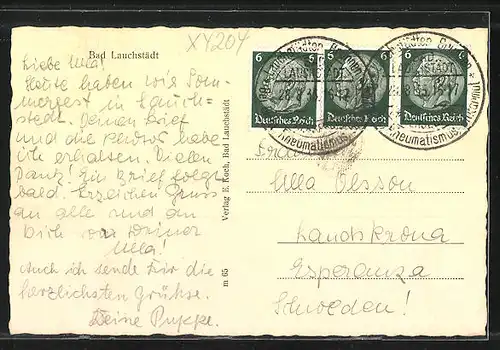 XY204
Bad Lauchstädt
Liebe Ulla!
Heute haben wir Som-
merfest in Lauch-
stedt. Deinen Brief
und die habe
ich erhalten. Vielen
Dank! Brief folgt
bald. Gruss
an alle und an
Dich von Deiner
Ulla!
Auch ich sende Dir die
herzlichsten Grüße.
Deine Puppe.
Verlag E. Koch, Bad Lauchstädt
m 65
6 6 6 6
Deutsches Reich Deutsches Reich Deutsches Reich
LAUCHSTÄDT
Rheumatismus
Rheumatismus
Ulla Olsson
Landskrona
Esperanza
Schweden!